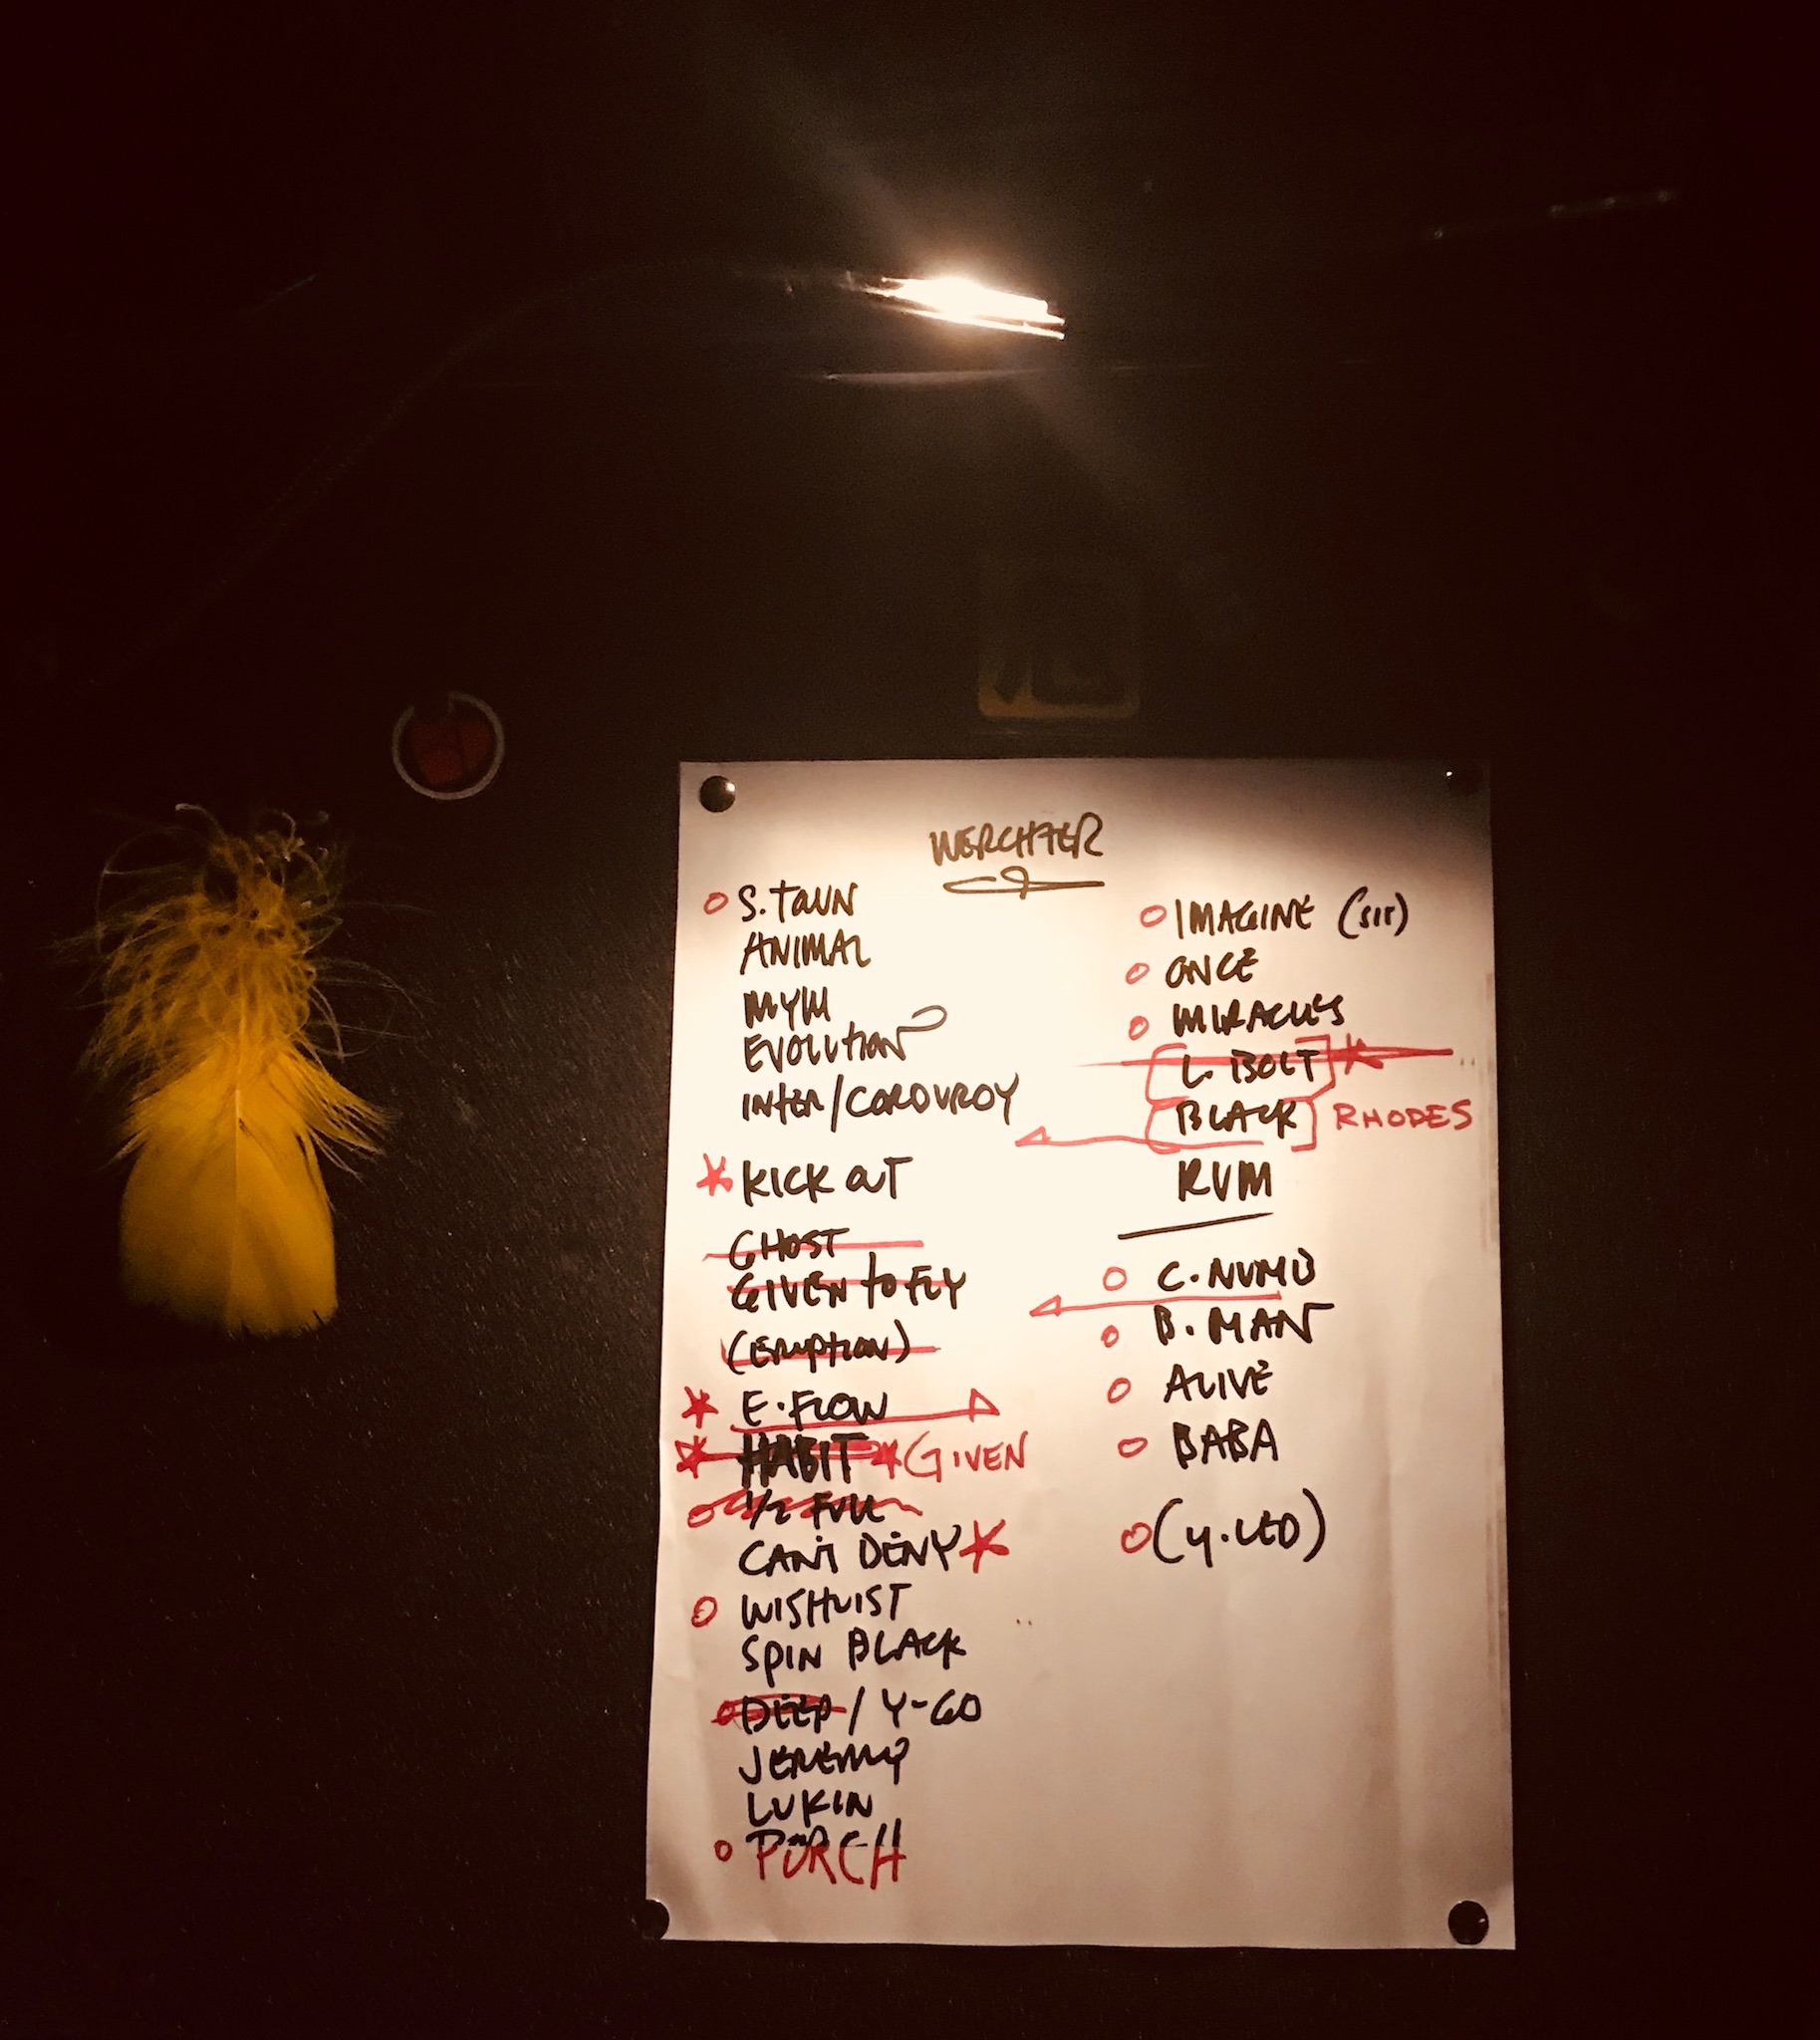 WERCHTER
S. TOWN
ANIMAL
MYM
EVOLUTION
INTER/CORDUROY
KICK OUT
GHOST
GIVEN to FLY
(ERUPTION)
E. FLOW
HABIT GIVEN
1/2 FULL
CAN'T DENY
WISHLIST
SPIN BLACK
DEEP / Y-GO
JEREMY
LUKIN
PORCH
IMAGINE (SIT)
ONCE
MIRACLES
L. BOLT
BLACK RHODES
RVM
C. NUMB
B. MAN
ALIVE
BABA
(Y. LED)